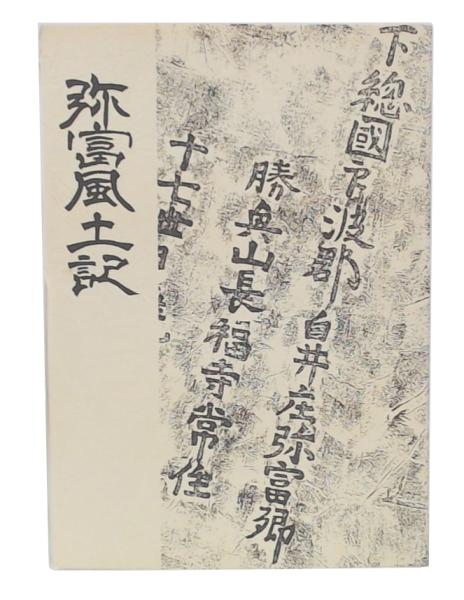 下總國印波郡臼井庄弥富郷
勝興山長福寺常住
十七世日
弥富風土記